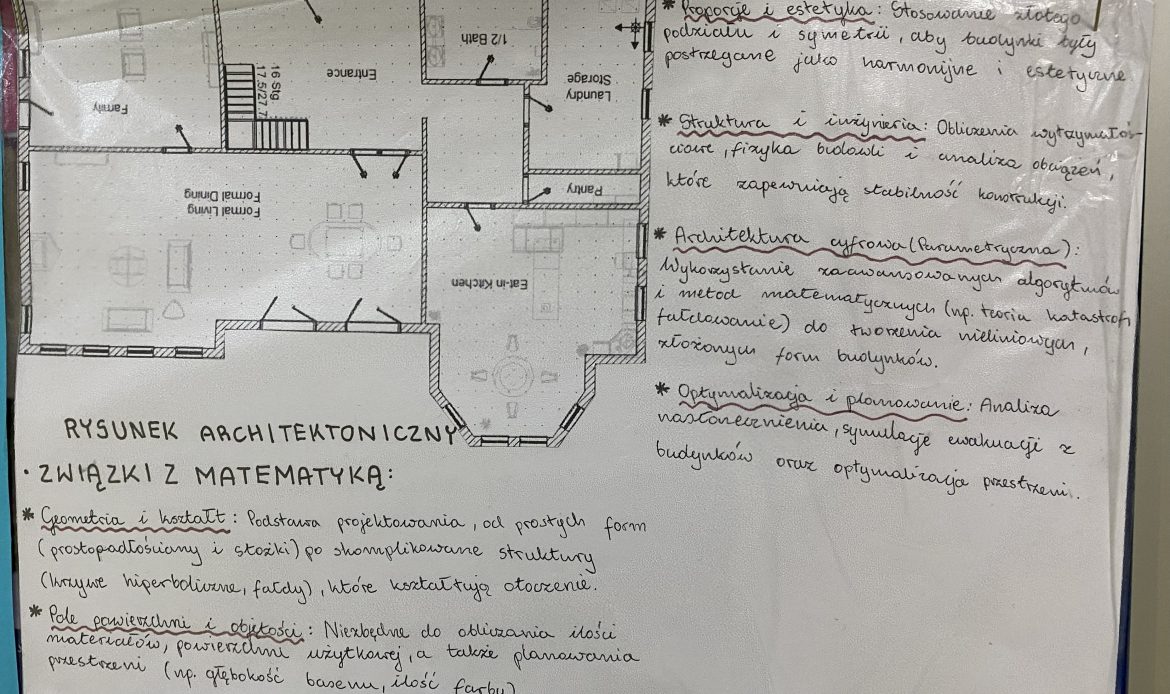 1/2 Bath
Laundry
Storage
Entrance
16 Stg
17.5/27.7
Family
Pantry
Formal Living
Formal Dining
Eat-in-Kitchen
RYSUNEK ARCHITEKTONICZNY
• ZWIĄZKI Z MATEMATYKĄ:
* Geometria i kształt: Podstawa projektowania, od prostych form
(prostopadłościany i stożki) po skomplikowane struktury
(krzywe hiperboliczne, fałdy), które kształtują otoczenie.
* Pole powierzchni i objętości: Niezbędne do obliczania ilości
materiałów, powierzchni użytkowej, a także planowania
przestrzeni (np. głębokość basenu, ilość farby)
* Proporcje i estetyka: Stosowanie złotego
podziału i symetrii, aby budynki były
postrzegane jako harmonijne i estetyczne
* Struktura i inżynieria: Obliczenia wytrzymałoś-
ciowe, fizyka budowli i analiza obciążeń,
które zapewniają stabilność konstrukcji.
* Architektura cyfrowa (Parametryczna):
Wykorzystanie zaawansowanych algorytmów
i metod matematycznych (np. teoria katastrof,
fałdowanie) do tworzenia nieliniowych,
złożonych form budynków.
* Optymalizacja i planowanie: Analiza
nasłonecznienia, symulacje ewakuacji z
budynków oraz optymalizacja przestrzeni.